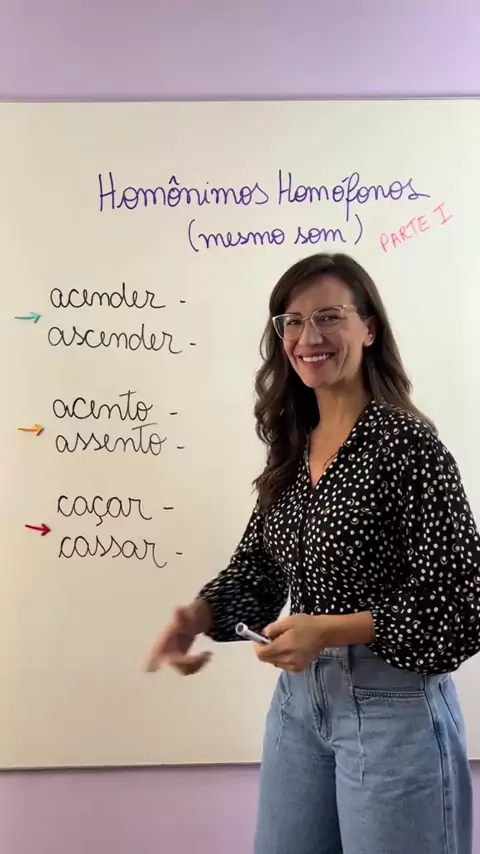 Homônimos Homófonos
(mesmo som)
PARTE I
acender -
ascender -
acento -
assento -
caçar -
cassar -